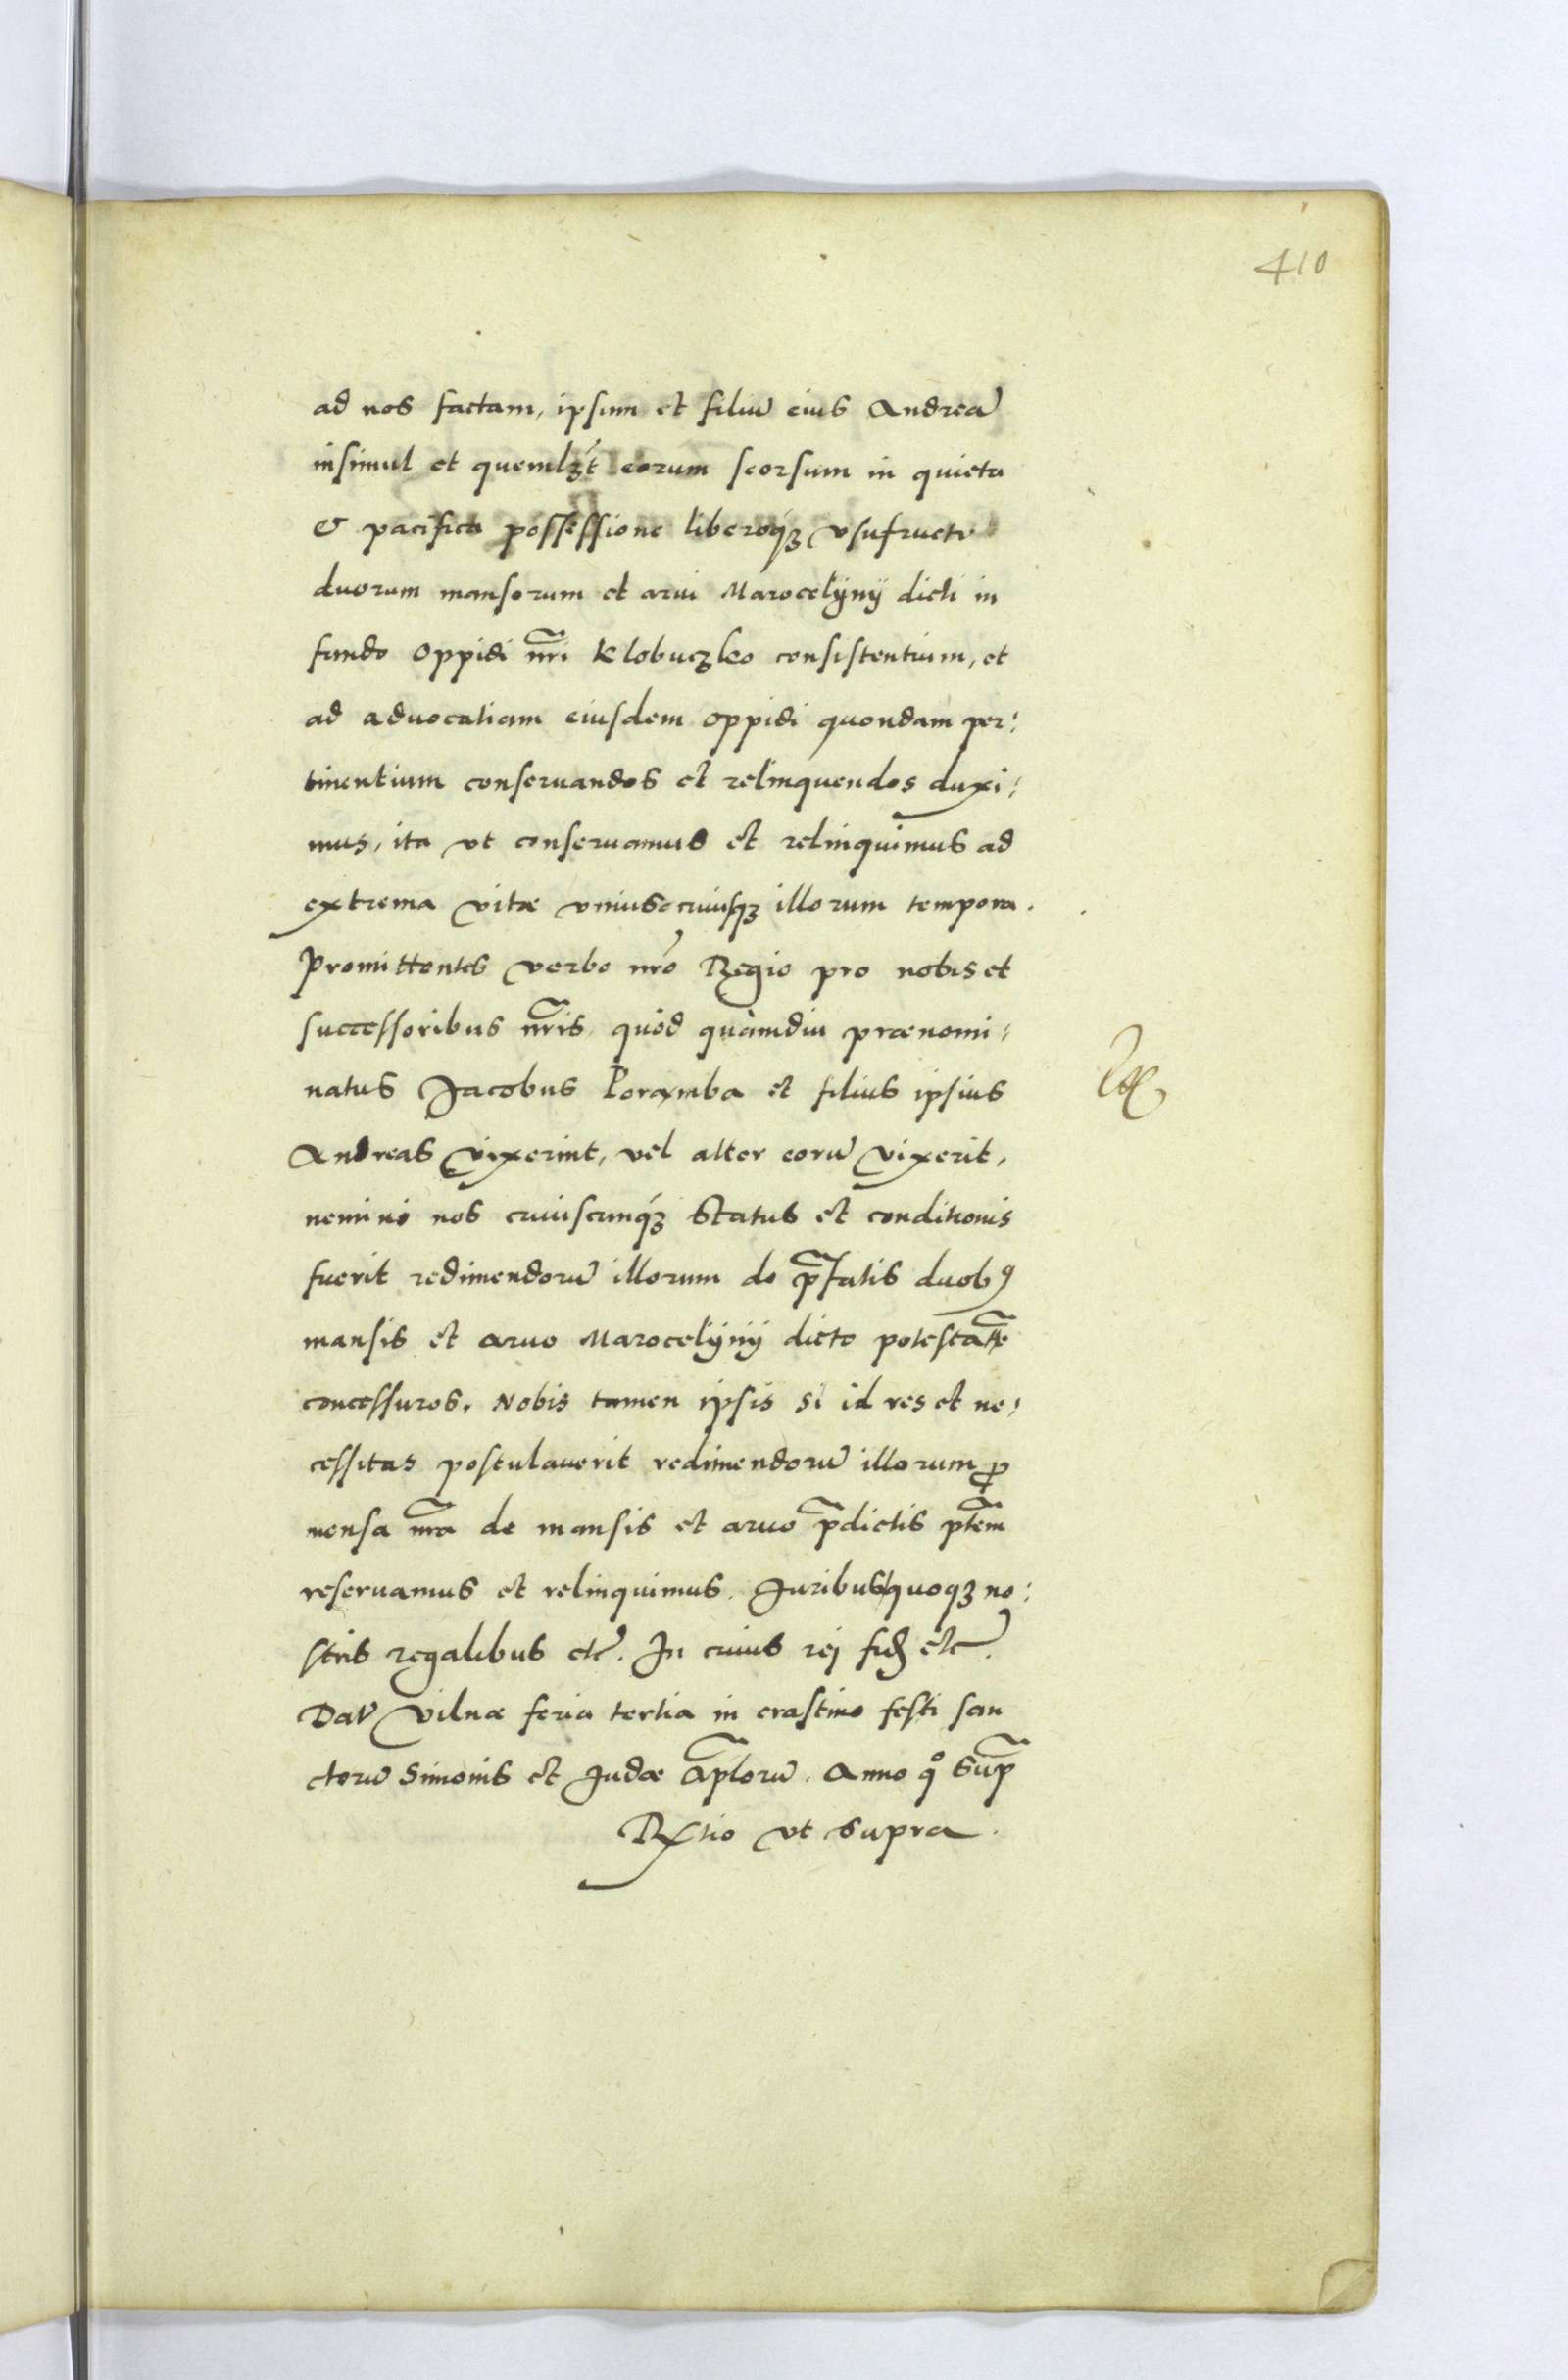 410
ad nos factam, ipsum et filiũ eius Andreã
insimul et quemlꝫt eorum seorsum in quieta
& pacifica possessione liberoqꝫ vsufructu
duorum mansorum et arui Marocelÿnÿ dicti in
fundo oppidi nr̃i Klobuczko consistentium, et
ad aduocatiam eiusdem oppidi quondam per:
tinentium conseruandos et relinquendos duxi:
mus, ita vt conseruamus et relinquimus ad
extrema vitæ vniuscuiusqꝫ illorum tempora.
Promittentes verbo nr̃o Regio pro nobis et
successoribus nr̃is, quòd quàmdiu prænomi:
natus Jacobus Poramba et filius ipsius
Andreas vixerint, vel alter eorũ vixerit,
nemini nos cuiuscunqꝫ status et conditionis
fuerit redimendorũ illorum de p̃fatis duobꝰ
mansis et aruo Marocelÿnÿ dicto potestatẽ
concessuros. Nobis tamen ipsis si id res et ne:
cessitas postulauerit redimendorũ illorum ꝓ
mensa nr̃a de mansis et aruo p̃dictis ptẽm
reseruamus et relinquimus. Juribus quoqꝫ no:
stris regalibus etc̃. In cuius rej fid̃ etc̃.
Dat̃ Vilnæ feria tertia in crastino festi san
ctorũ Simonis et Judæ Ap̃lorũ. Anno qº sup̃
R̃tio vt supra.